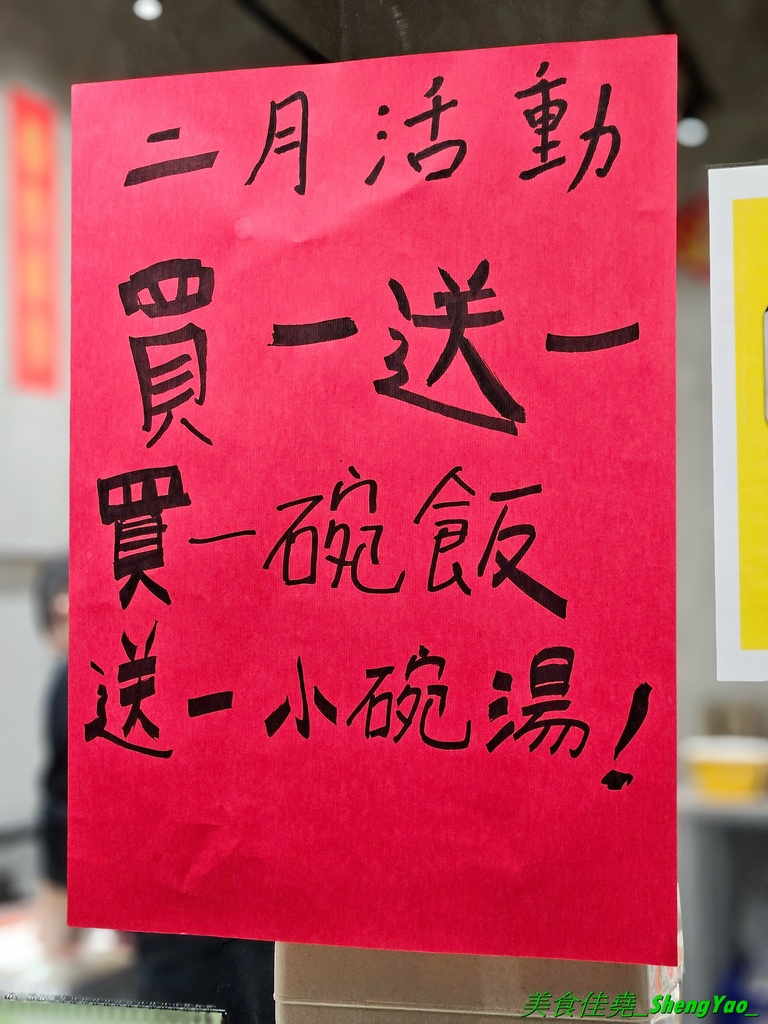 二月活動
買一送一
買一碗飯
送一小碗湯!
美食佳堯_ShengYao_